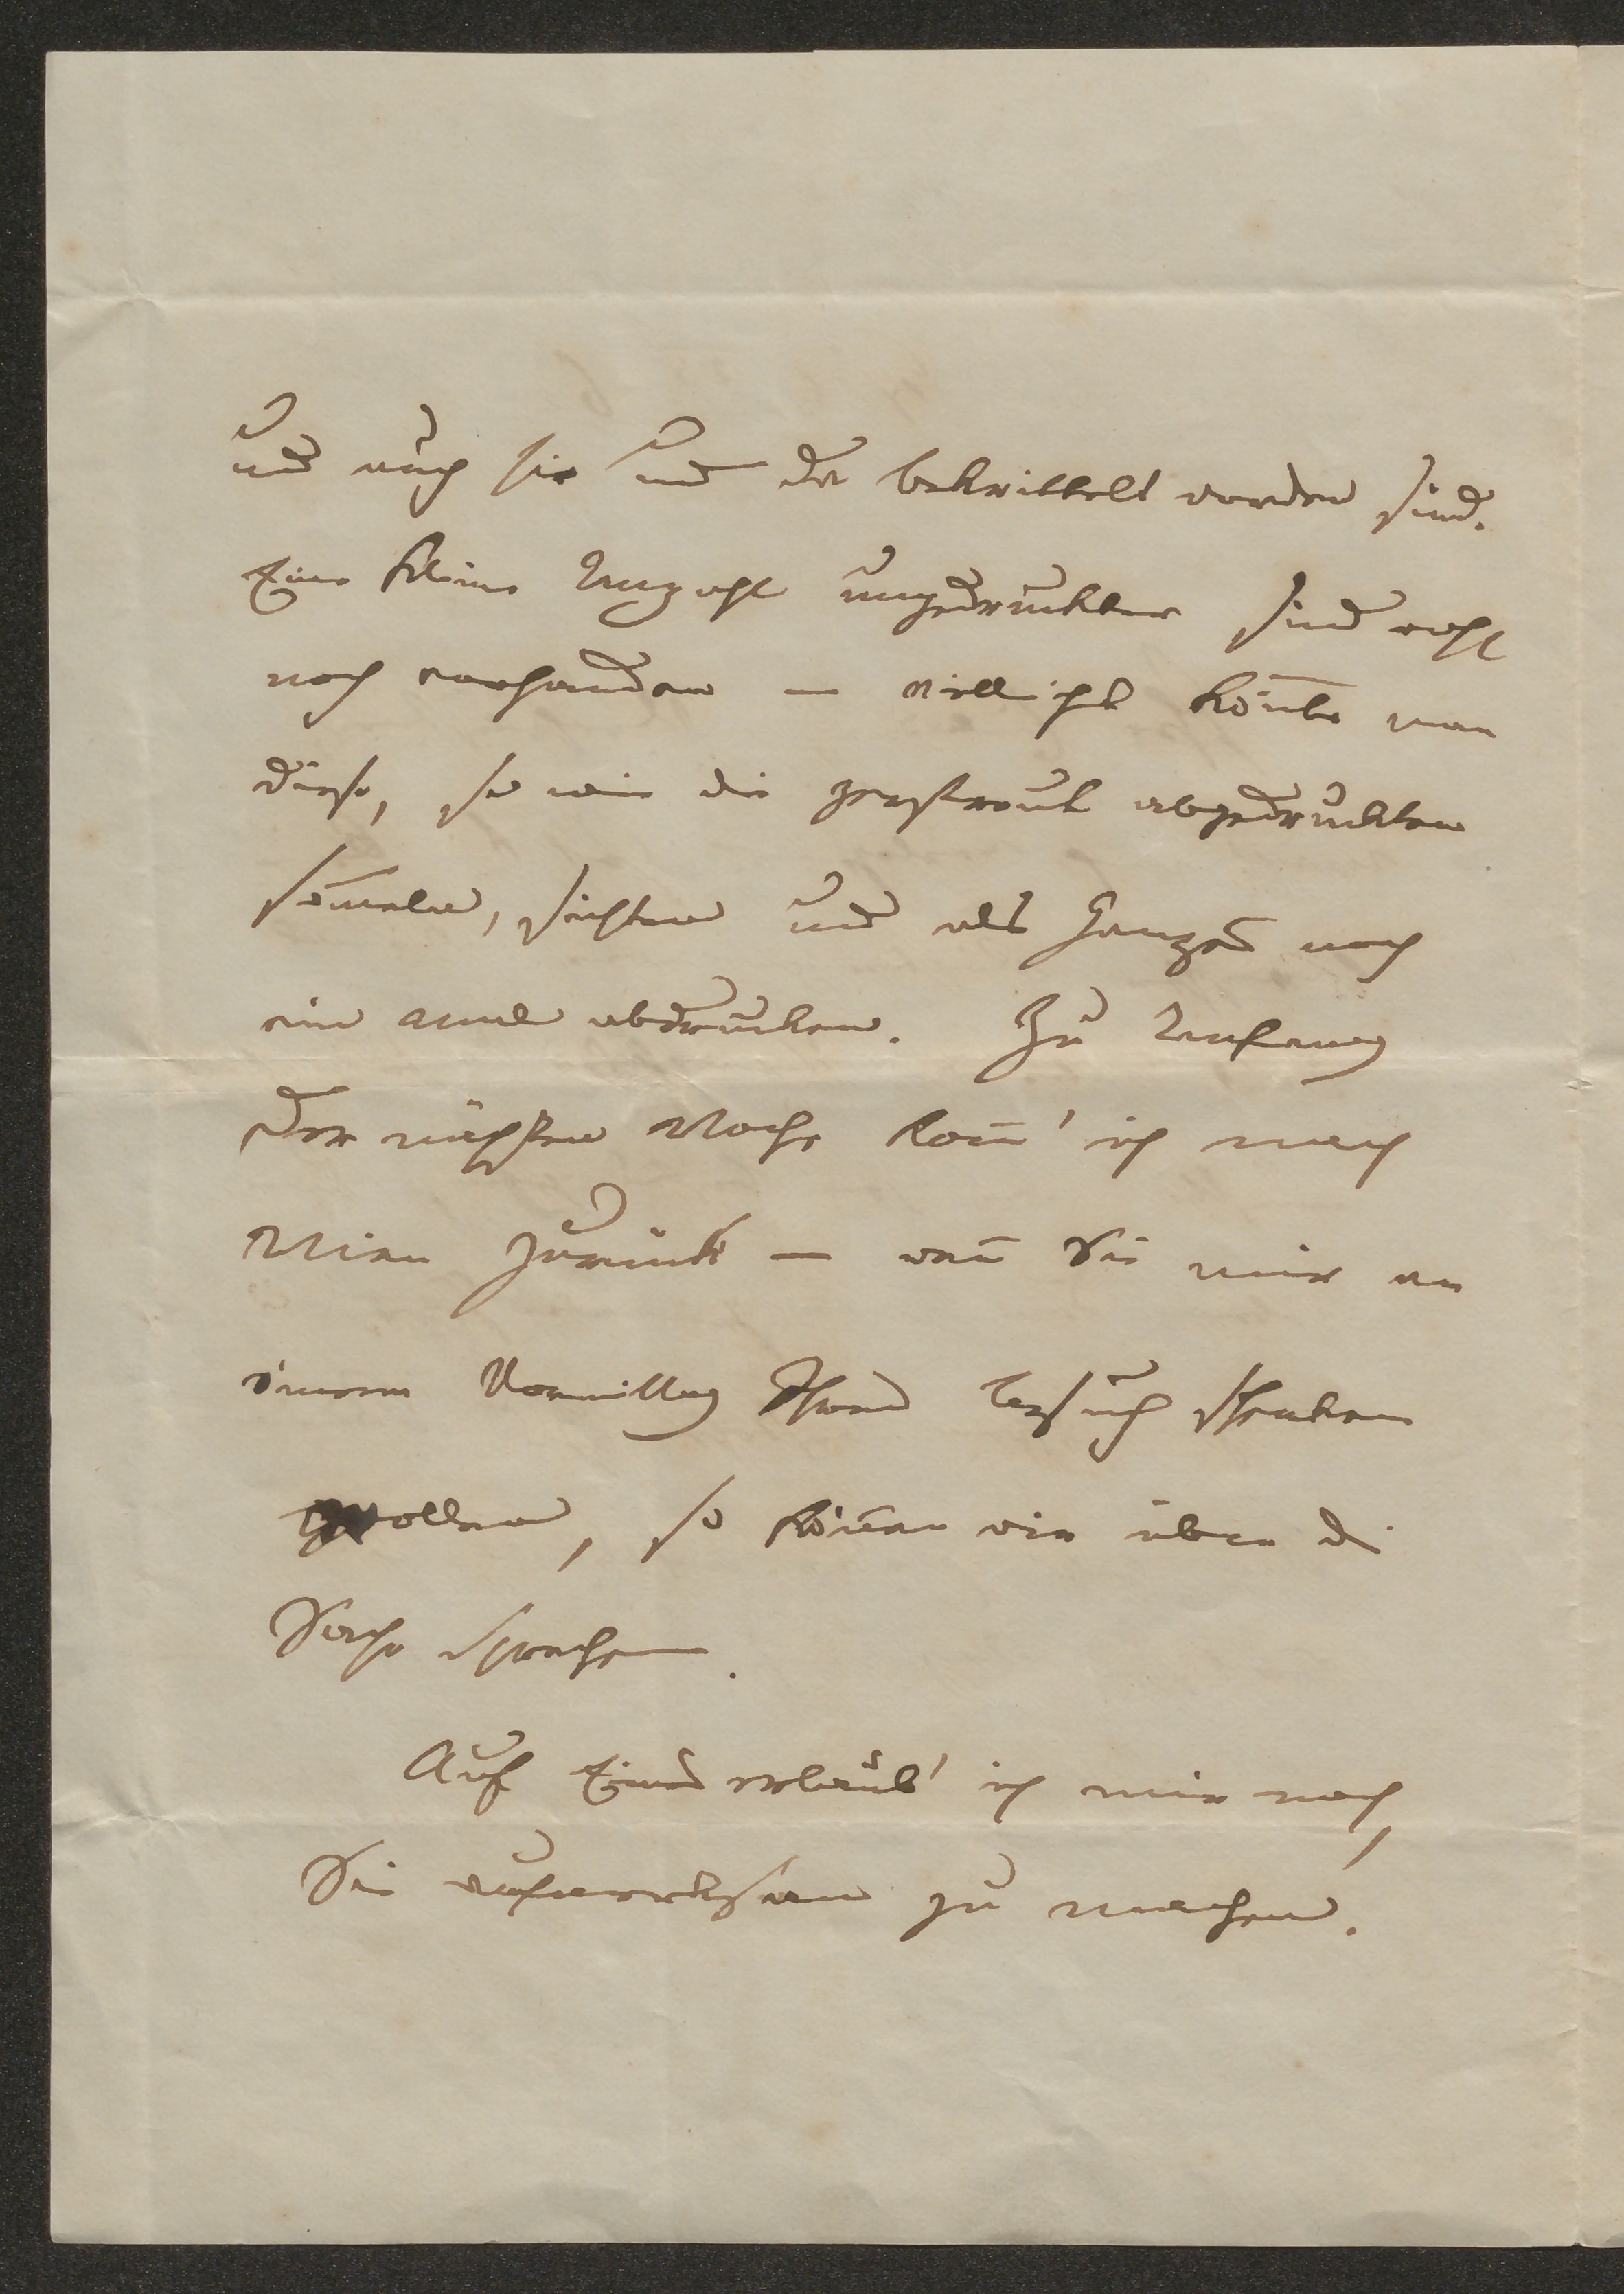 und auch hie und da bekrittelt worden sind.
Eine kleine Anzahl ungedruckter sind wohl
noch vorhanden — vielleicht kön̄te man
diese, so wie die zerstreut abgedruckten
sam̄eln, sichten und als Ganzes noch
ein mal abdrucken. Zu Anfang
der nächsten Woche kom̄' ich nach
Wien zurück — wen̄ Sie mir an
einem Vormittag Ihren Besuch schenken
wollen, so kön̄en wir über die
Sache sprechen.
Auf Eines erlaub' ich mir noch,
Sie aufmerksam zu machen.